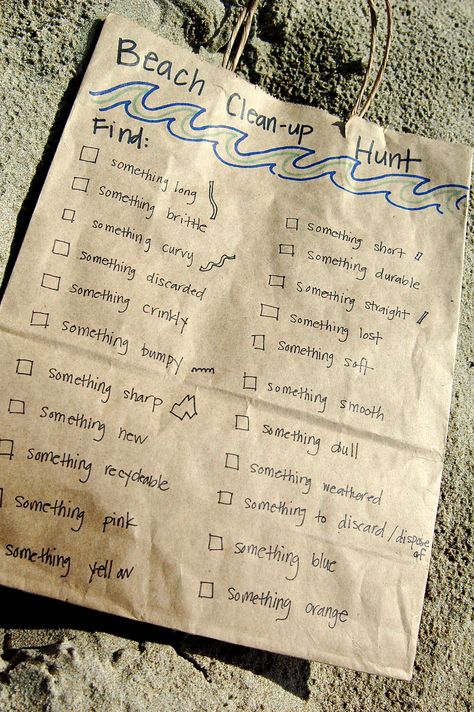 Beach Clean-up Hunt
Find:
something long
something brittle
something curvy
something discarded
something crinkly
something bumpy
something sharp
something new
something recycleable
something pink
something yellow
something short
something durable
something straight
something lost
something soft
something smooth
something dull
something weathered
something to discard/dispose of
something blue
something orange